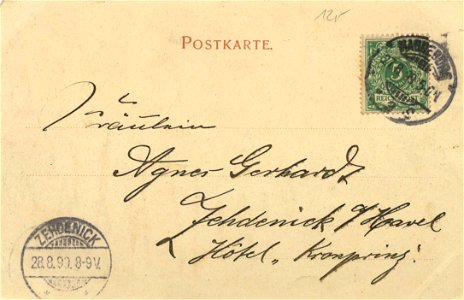 12,-
POSTKARTE.
MAGDEBURG
5
Fräulein
Agnes Gerhardt
Zehdenick a/Havel
Hôtel „Kronprinz."
ZEHDENICK
28.8.99. 8-9V.